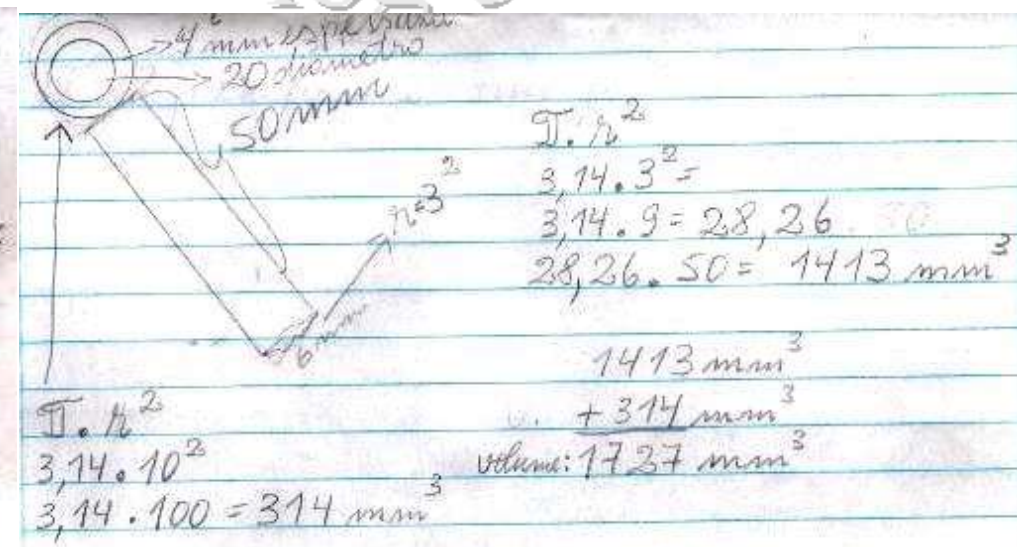 → 4 mm espessura
→ 20 diametro
50 mm
r=3
6 mm
π . r²
3,14 . 3² =
3,14 . 9 = 28,26
28,26 . 50 = 1413 mm³
1413 mm³
+ 314 mm³
volume: 1727 mm³
π . r²
3,14 . 10²
3,14 . 100 = 314 mm³